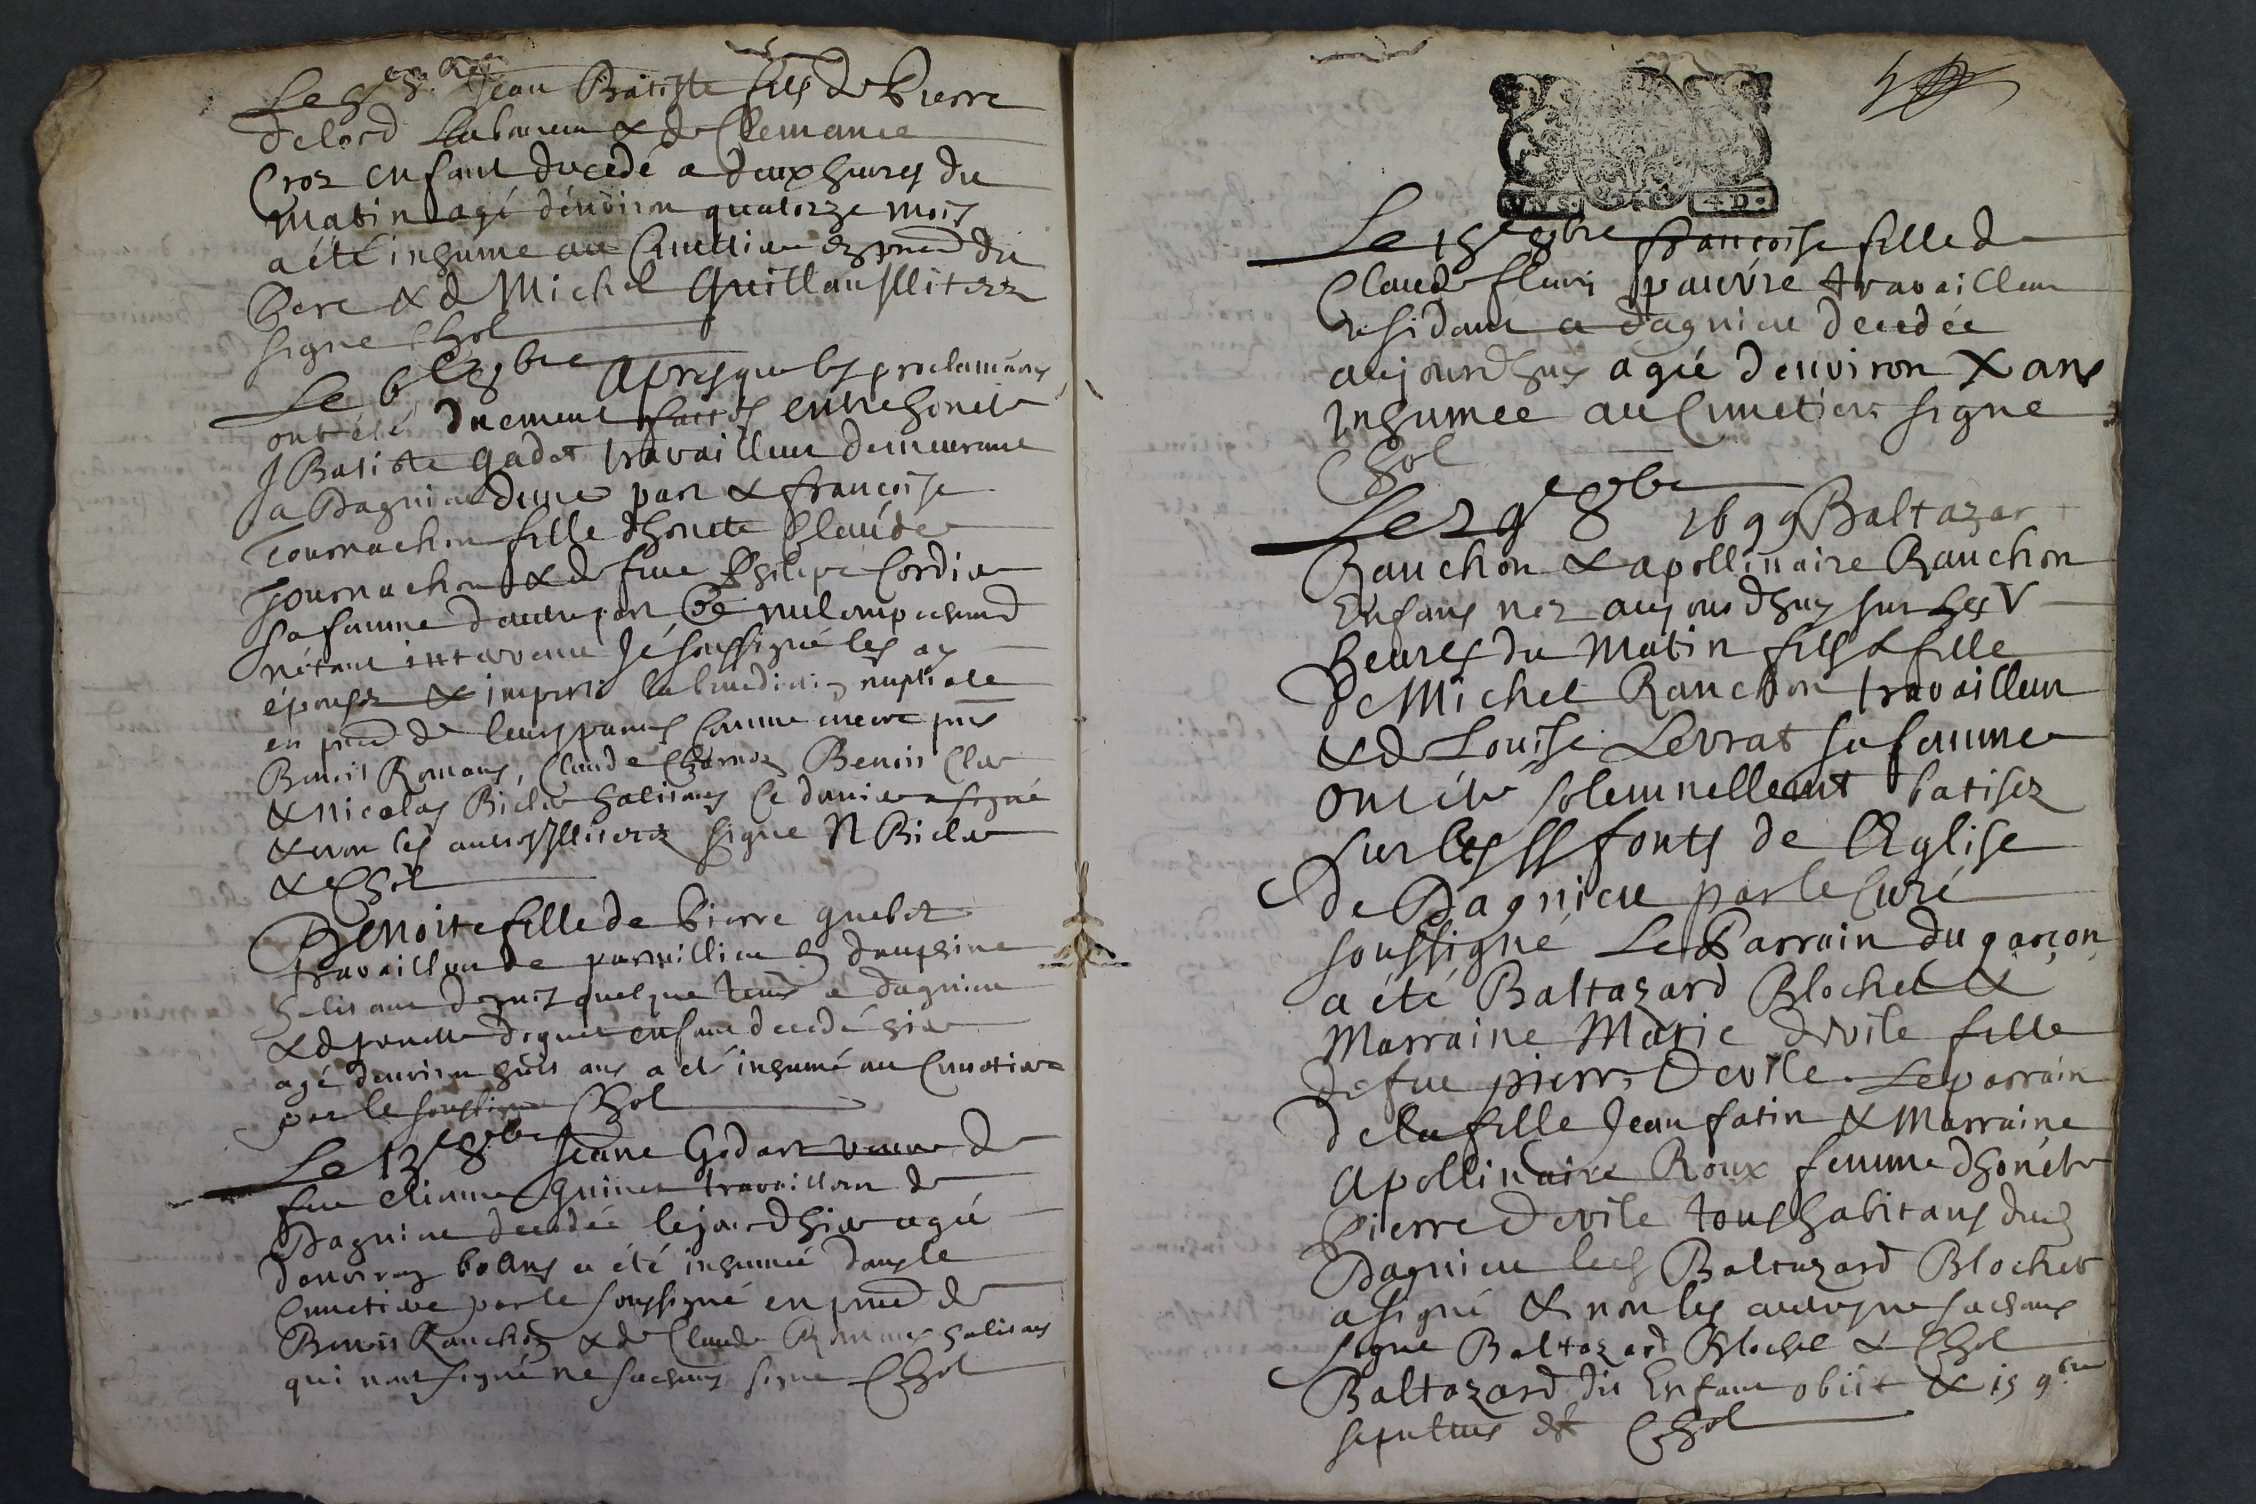 Jean Batiste fils de Pierre
delord laboureur & de Clemance
Croz enfant decedé a deux heures du
Matin agé d'environ quatorze mois
a été inhumé au Cimetiere du
Pere & de Michel Guillau Illiterez
signe Chol
Le 6e 8bre Apres que les proclamations
ont été duement faites entre honete
J Batiste Gadet travailleur demeurant
a Dagnieu d'une part & françoise
Tournachon fille d'honete Claude
Tournachon & de feue Philipe Cordier
sa femme d'autre part & nul empechement
n'étant intervenu Je soussigné les ay
épousez & imparti la benediction nuptiale
en de leurs parens comme encore
Benoit Romans, Claude Benoit
& Nicolas Biclet habitans Ce dernier a signé
& non les autres Illiterez signe N Biclet
& Chol
Benoite fille de Pierre guebet
travailleur de en dauphine
habitant depuis quelque tems a dagnieu
& de enfant decedé hier
agé denviron huit ans a eté inhumé au Cimetiere
par le soussigné Chol
Le 13e 8bre Jeane Godart veuve de
feu Etienne Guinet travailleur de
Dagnieu decedée le jourdhier agée
denviron 60 ans a été inhumée dans le
Cimetiere par le soussigné en de
Benoit Ranchon & de Claude Romans habitans
qui nont signé ne sachans signe Chol
Le 18e 8bre françoise fille de
Claude fleuri pauvre travailleur
residant a dagnieu decedée
aujourdhuy agée denviron X ans
inhumée au Cimetiere signe
Chol
Le 29e 8bre 1699 Baltazar
Ranchon & apollinaire Ranchon
Enfans nez aujourdhuy sur les V
heures du Matin fils & fille
de Michel Ranchon travailleur
& de Louise Levrat sa femme
ont été solemnellement batisez
sur les SS fonts de l'Eglise
de Dagnieu par le Curé
soussigné Le Parrain du garçon
a été Baltazard Blochet &
Marraine Marie devile fille
de feu pierre Devile. Le parrain
de la fille Jean fatin & Marraine
Apollinaire Roux femme dhonéte
Pierre Devile tous habitans dud
Dagnieu led Baltazard Blochet
a signé & non les autres ne sachans
signe Baltazard Blochet & Chol
Baltazard dit Enfant obiit & 15 9bre
sepultus est Chol